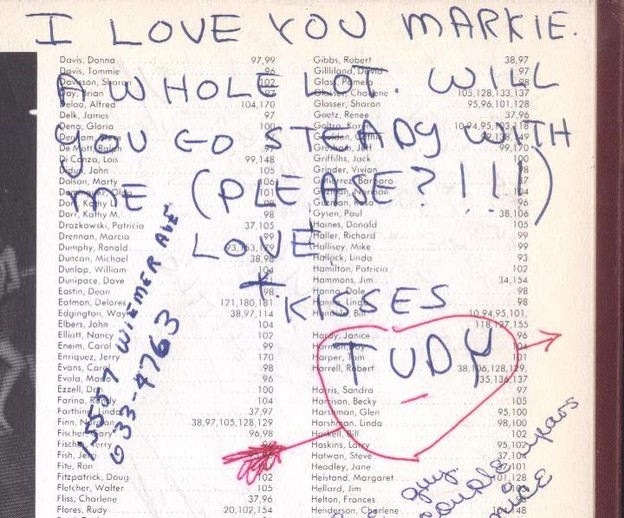 I LOVE YOU MARKIE.
A WHOLE LOT. WILL
YOU GO STEADY WITH
ME (PLEASE?!!!)
LOVE
+
KISSES
TUDY
15557 WIEMER AVE
633-4763
guy.
Davis, Donna 97,99
Davis, Tommie 96
Davisson, Sharon 102
Delao, Alfred 104,170
Delk, James 97
Dena, Gloria 100
De Mott,
Di Canza, Lois 99,148
John 105
Dolson, Marty
Dorr, Kathy
Dorr, Kathy M. 98
Drazkowski, Patricia 37,105
Drennan, Marcia 99
Dumphy, Ronald 93,163,129
Duncan, Michael 38,98
Dunlap, William 104
Dunipace, Dave
Eastin, Dean 98
Eatmon, Delores 121,180,181
Edgington, Way 38,97,114
Elbers, John 104
Elliott, Nancy 102
Eneim, Carol 99
Enriquez, Jerry 170
Evans, Caro 98
Evola, Ma 96
Ezzell, Do 100
Farino, Ra 104
Farthing, Linda 37,97
Finn, 38,97,105,128,129
Fischer, 96,98
Fische
Fish, Je
Fite, Ran
Fitzpatrick, Doug 102
Fletcher, Walter 105
Fliss, Charlene 37,96
Flores, Rudy 20,102,154
Gibbs, Robert 38,97
Gilliland, David 97
Glass, Pamela 98
Charlene 105,128,133,137
Glosser, Sharon 95,96,101,128
Goetz, Renee 37,96
10,94,95,103,118
Gresham, Jeff 99,170
Griffiths, Jack 100
Grinder, Vivian 98
Gutierrez, Barbara 37
Guzman, Norman 104
Guzman, 96
Gysen, Paul 38,106
Haines, Donald 105
Haller, Richard 99
Hallisey, Mike 99
Linda 93
Hamilton, Patricia 102
Hammons, Jim 34,154
Hanna, Dale 98
Linda 98
Bill 10,94,95,101,
118,137,155
Hardy, Janice 96
104
Harper, Tom 101
Harrell, Robert 38,106,128,129,
135,136,137
Harris, Sandra 97
Harrison, Becky 105
Harshman, Glen 95,100
Harshman, Linda 98,100
Haskell, Bill 102
Haskins, Larry 95,102
Hatwan, Steve 37,10
Headley, Jane 101
Heistand, Margaret 101,128
Hellard, Jim
Helton, Frances
Henderson, Charlene 148